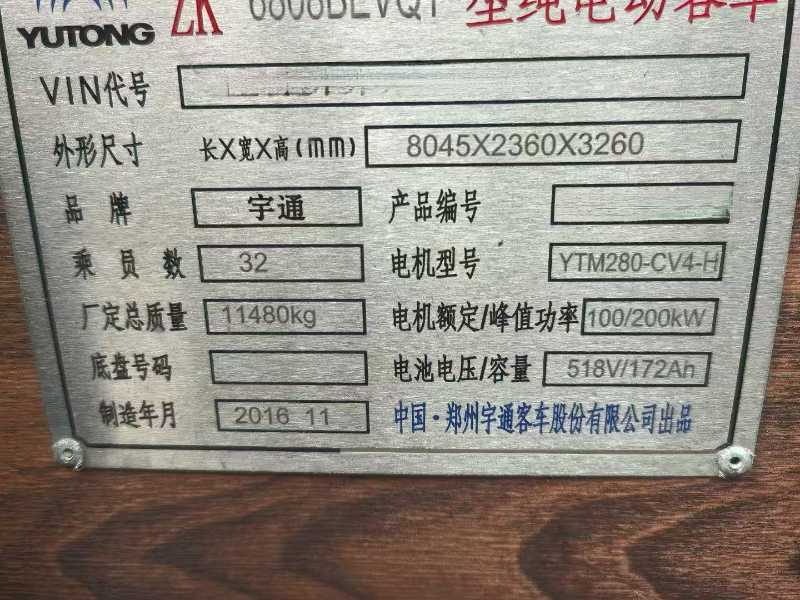 YUTONG ZK 6808BEVQ1 型纯电动客车
VIN代号
外形尺寸 长X宽X高(mm) 8045X2360X3260
品牌 宇通 产品编号
乘员数 32 电机型号 YTM280-CV4-H
厂定总质量 11480kg 电机额定/峰值功率 100/200kW
底盘号码 电池电压/容量 518V/172Ah
制造年月 2016 11 中国·郑州宇通客车股份有限公司出品